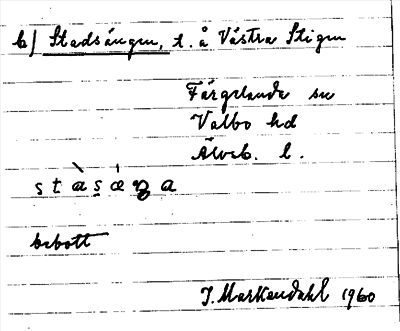 b) Stadsängen, t. å Västra Stigen
Färgelanda sn
Valbo hd
Älvsb. l.
bebott
J. Markendahl 1960